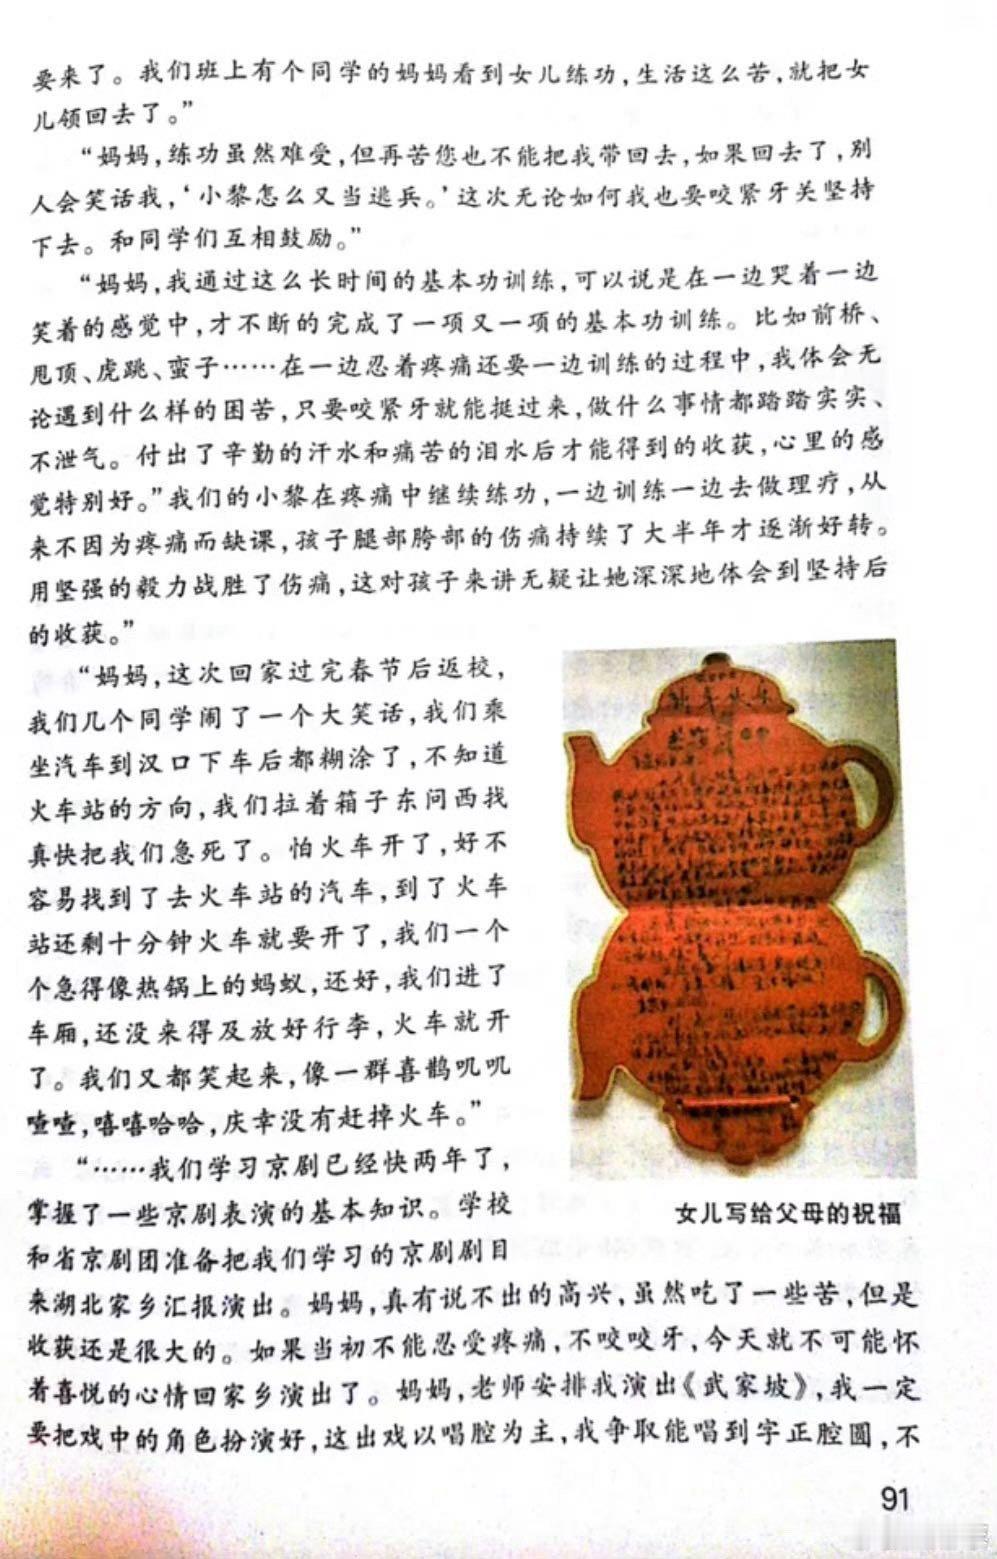 要来了。我们班上有个同学的妈妈看到女儿练功，生活这么苦，就把女
儿领回去了。”
“妈妈，练功虽然难受，但再苦您也不能把我带回去，如果回去了，别
人会笑话我，‘小黎怎么又当逃兵。’这次无论如何我也要咬紧牙关坚持
下去。和同学们互相鼓励。”
“妈妈，我通过这么长时间的基本功训练，可以说是在一边哭着一边
笑着的感觉中，才不断的完成了一项又一项的基本功训练。比如前桥、
甩顶、虎跳、蛮子……在一边忍着疼痛还要一边训练的过程中，我体会无
论遇到什么样的困苦，只要咬紧牙就能挺过来，做什么事情都踏踏实实、
不泄气。付出了辛勤的汗水和痛苦的泪水后才能得到的收获，心里的感
觉特别好。”我们的小黎在疼痛中继续练功，一边训练一边去做理疗，从
来不因为疼痛而缺课，孩子腿部胯部的伤痛持续了大半年才逐渐好转。
用坚强的毅力战胜了伤痛，这对孩子来讲无疑让她深深地体会到坚持后
的收获。”
“妈妈，这次回家过完春节后返校，
我们几个同学闹了一个大笑话，我们乘
坐汽车到汉口下车后都糊涂了，不知道
火车站的方向，我们拉着箱子东问西找
真快把我们急死了。怕火车开了，好不
容易找到了去火车站的汽车，到了火车
站还剩十分钟火车就要开了，我们一个
个急得像热锅上的蚂蚁，还好，我们进了
车厢，还没来得及放好行李，火车就开
了。我们又都笑起来，像一群喜鹊叽叽
喳喳，嘻嘻哈哈，庆幸没有赶掉火车。”
“……我们学习京剧已经快两年了，
掌握了一些京剧表演的基本知识。学校
和省京剧团准备把我们学习的京剧剧目
来湖北家乡汇报演出。妈妈，真有说不出的高兴，虽然吃了一些苦，但是
收获还是很大的。如果当初不能忍受疼痛，不咬咬牙，今天就不可能怀
着喜悦的心情回家乡演出了。妈妈，老师安排我演出《武家坡》，我一定
要把戏中的角色扮演好，这出戏以唱腔为主，我争取能唱到字正腔圆，不
女儿写给父母的祝福
91